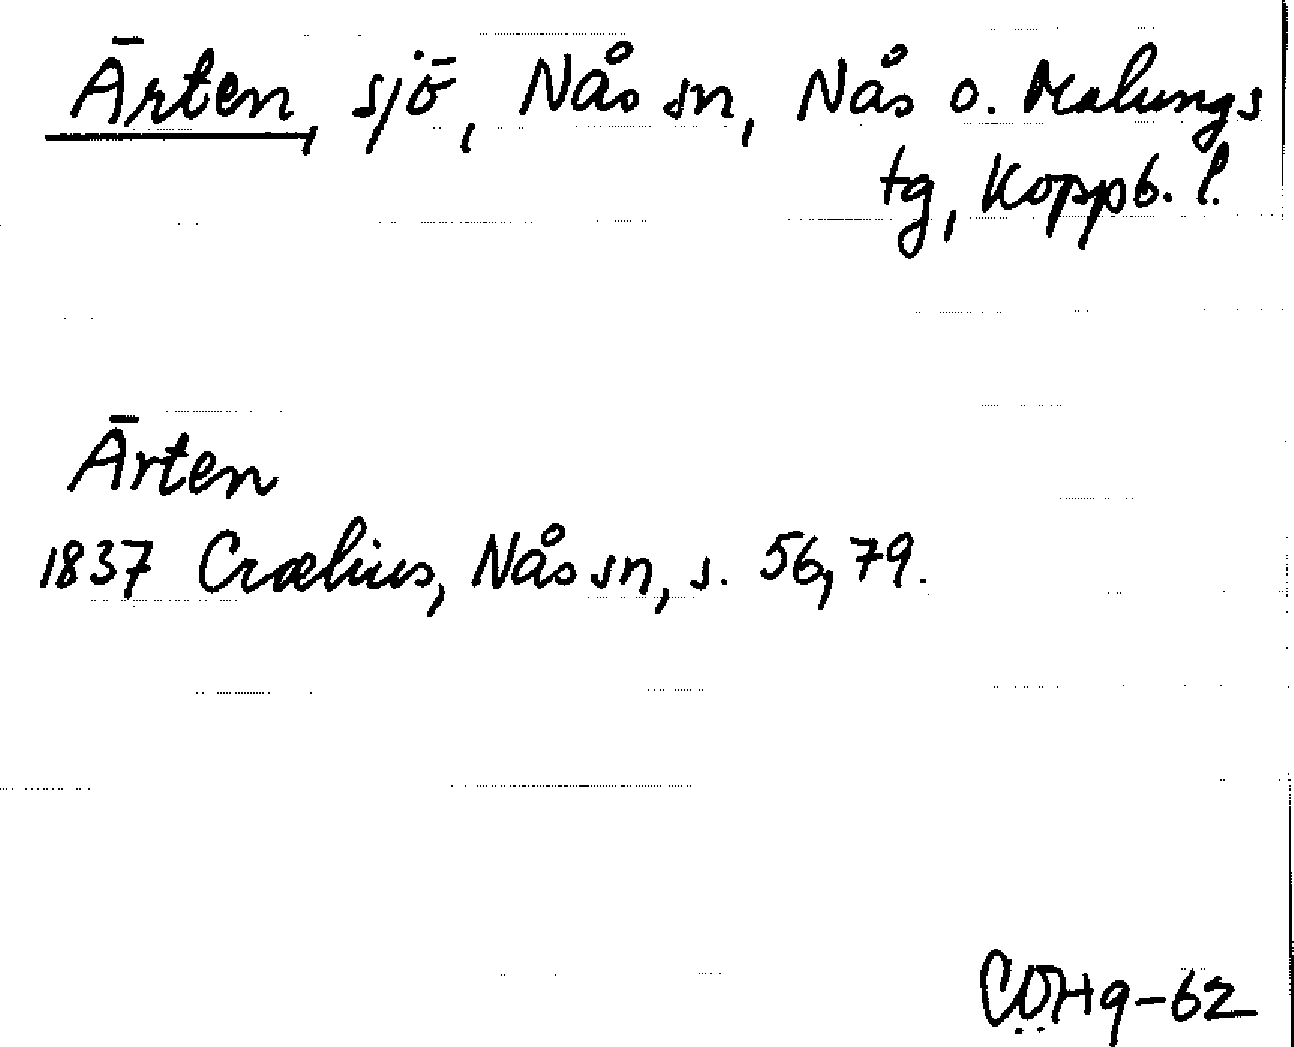 Ärten, sjö, Nås sn, Nås o. Malungs
tg, Koppb. l.
Ärten
1837 Crælius, Nås sn, s. 56, 79.